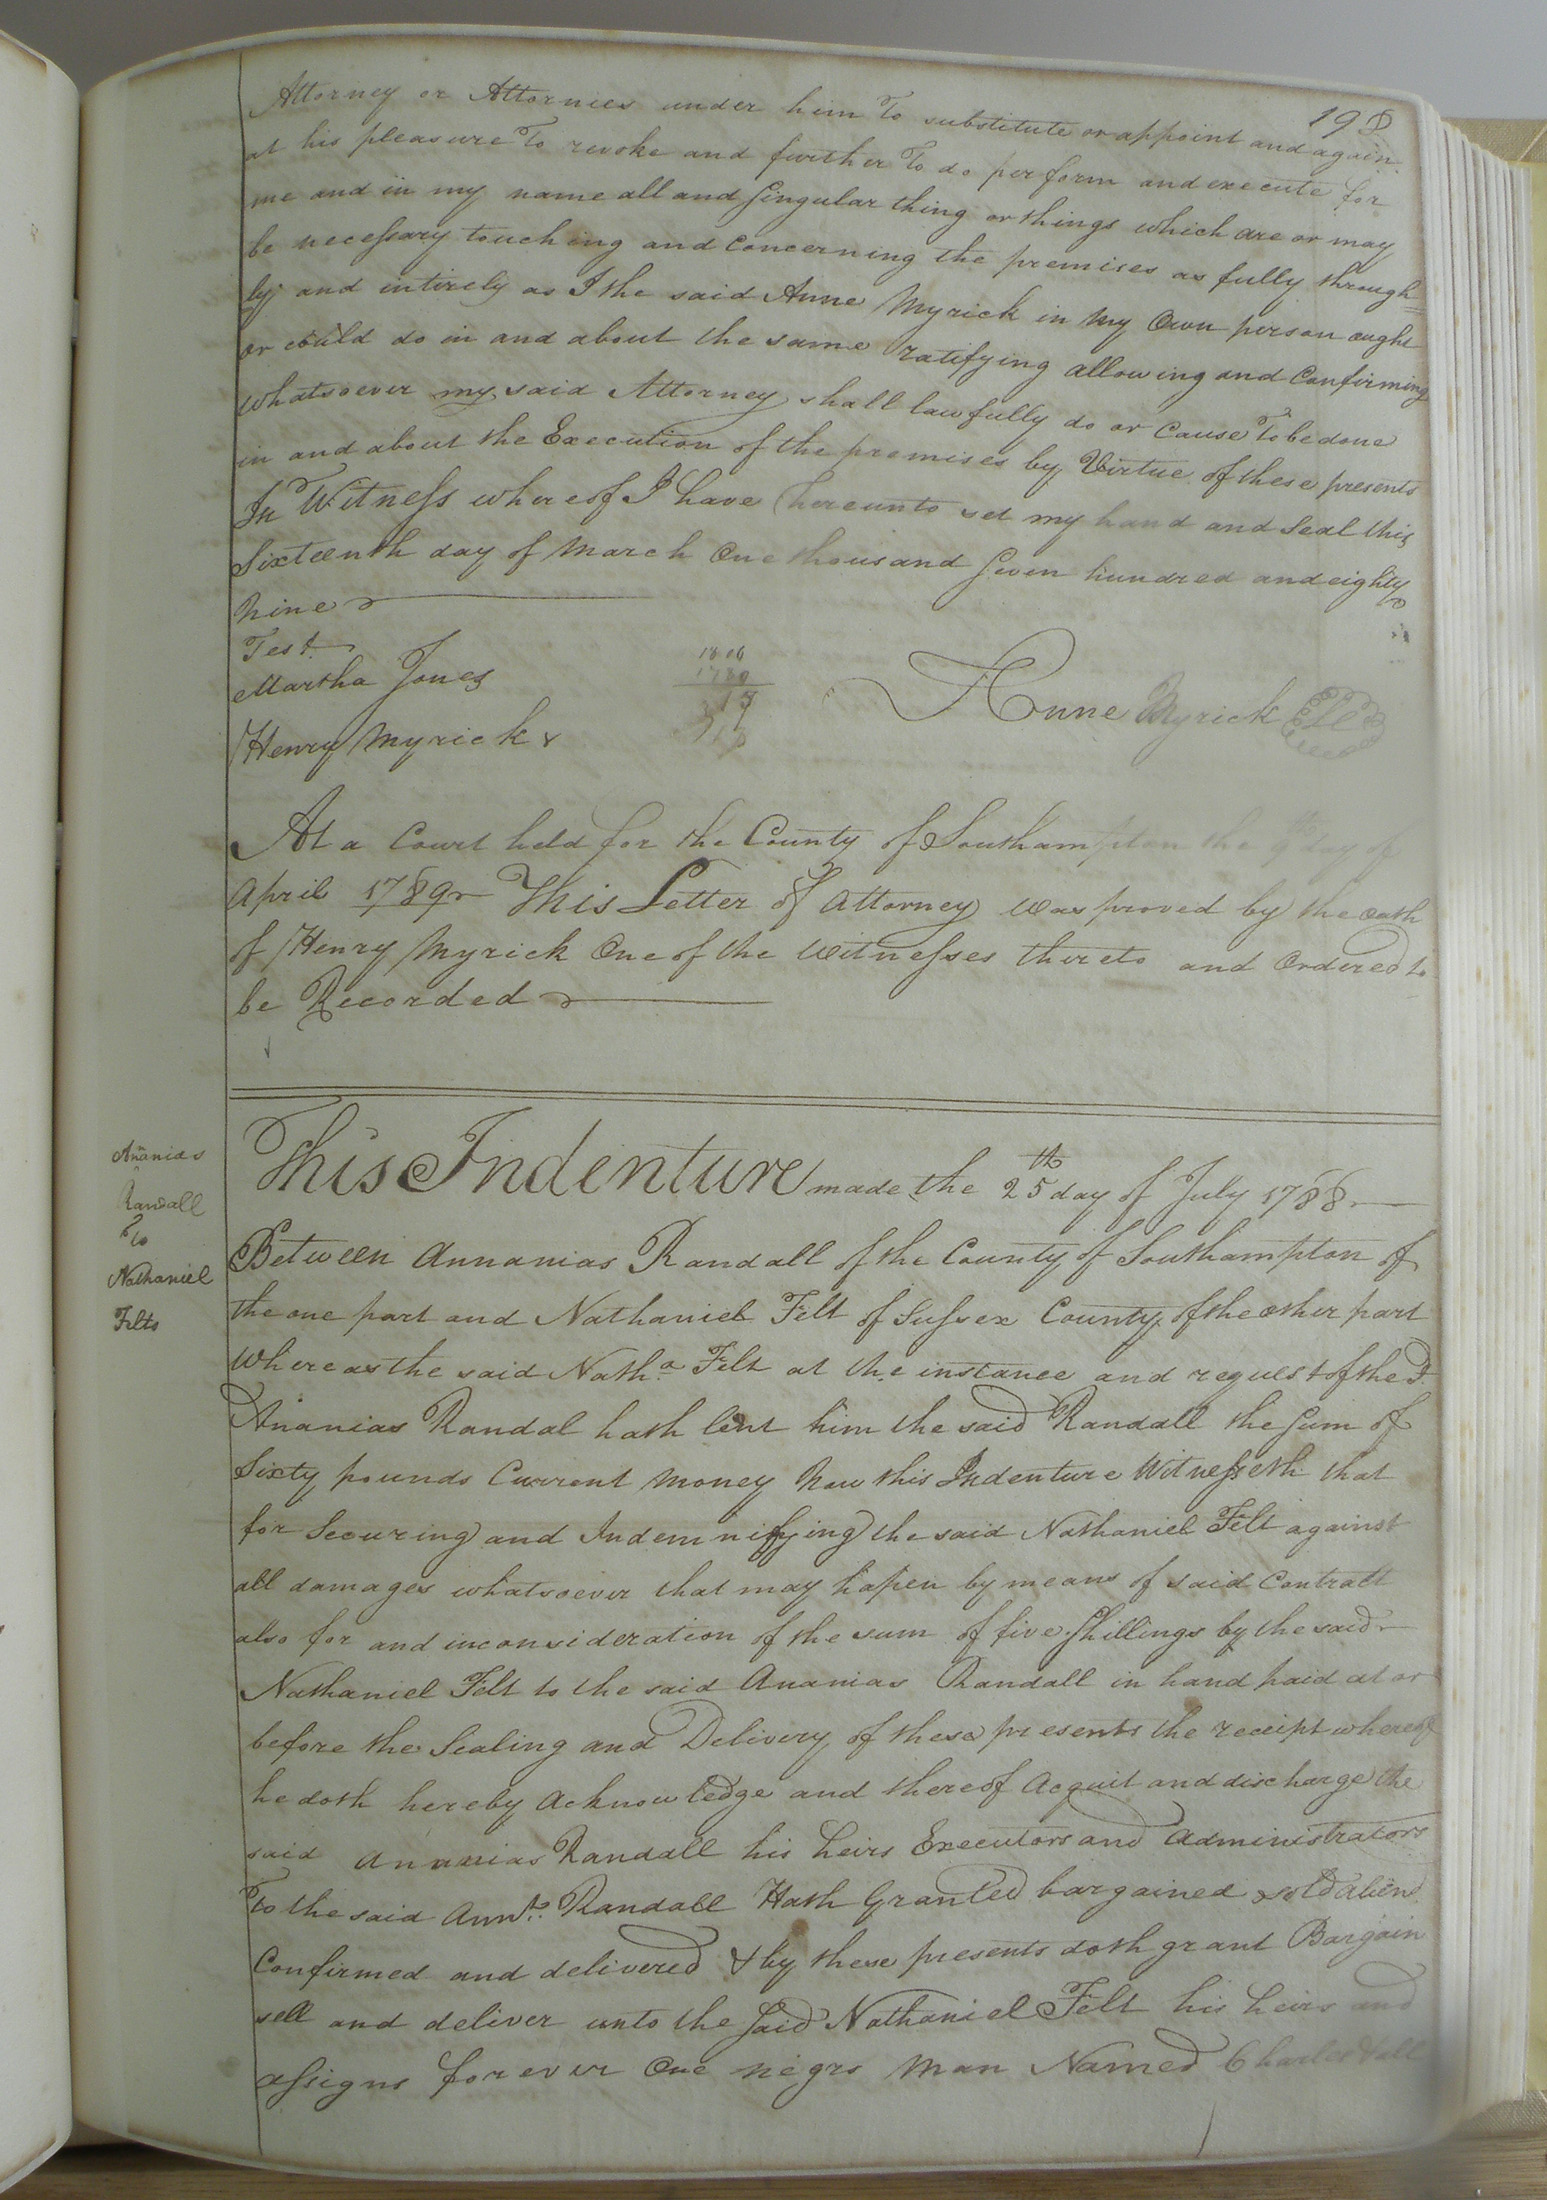 198
Attorney or Attornies under him To substitute or appoint and again
at his pleasure To revoke and further To do perform and execute for
me and in my name all and singular thing or things which are or may
be necessary touching and concerning the premises as fully through=
ly and intirely as I the said Anne Myrick in my Own person ought
or could do in and about the same ratifying allowing and Confirming
whatsoever my said Attorney shall lawfully do or Cause To be done
in and about the Execution of the premises by Virtue of these presents
In Witness whereof I have hereunto set my hand and Seal this
Sixteenth day of March One thousand Seven hundred and eighty
Nine
Test
Martha Jones
Henry Myrick
1806
1789
17
Anne Myrick
At a Court held for the County of Southampton the 9th day of
April 1789 This Letter of Attorney was proved by the oath
of Henry Myrick One of the Witnesses thereto and Ordered to
be Recorded
Ananias
Randall
To
Nathaniel
Felts
This Indenture made the 25th day of July 1788
Between Annanias Randall of the County of Southampton of
the one part and Nathaniel Felt of Sussex County of the other part
Whereas the said Natha. Felt at the instance and request of the sd.
Ananias Randal hath lent him the said Randall the Sum of
Sixty pounds Current Money Now this Indenture Witnesseth that
for Securing and Indemnifying the said Nathaniel Felt against
all damages whatsoever that may hapen by means of said Contract
also for and inconsideration of the sum of five Shillings by the said
Nathaniel Felt to the said Ananias Randall in hand paid at or
before the Sealing and Delivery of these presents the receipt whereof
he doth hereby Acknowledge and thereof Acquit and discharge the
said Ananias Randall his heirs Executors and Administrators
To the said Randall Hath Granted bargained sold aliend
Confirmed and delivered & by these presents doth grant Bargain
sell and deliver unto the said Nathaniel Felt his heirs and
assigns forever One negro Man Named Charles